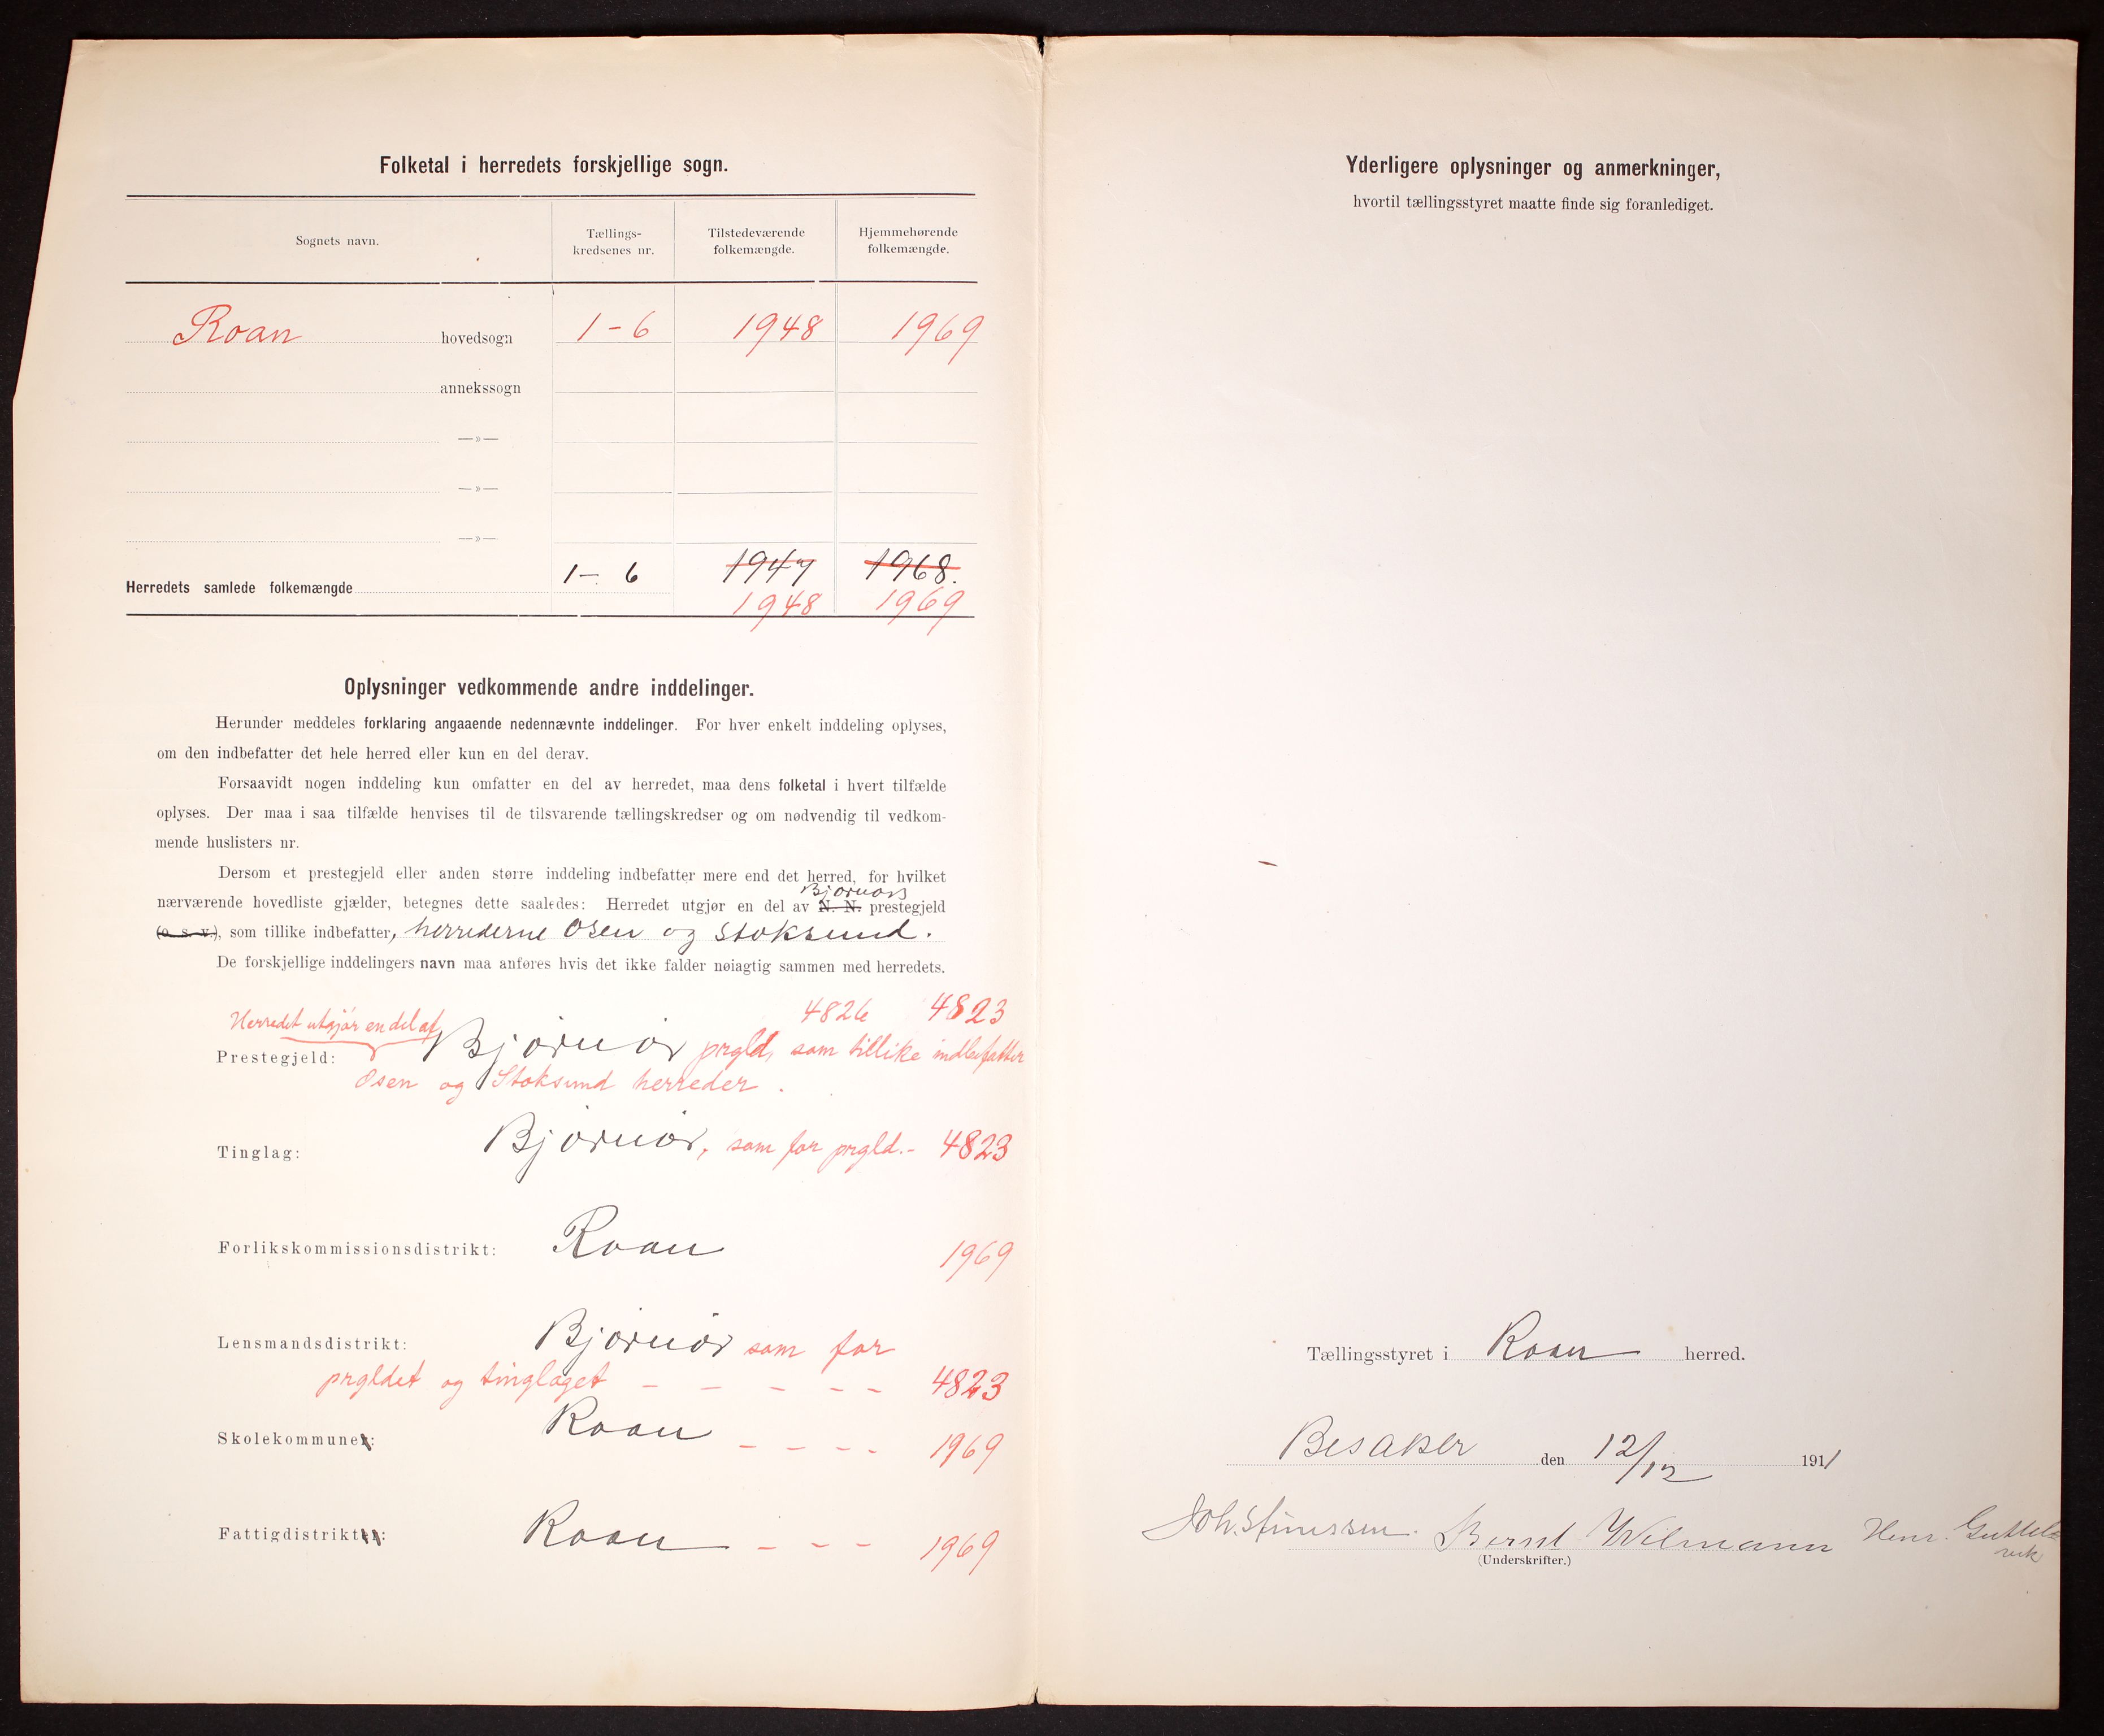 Folketal i herredets forskjellige sogn.
Sognets navn.
Tællings-
kredsenes nr.
Tilstedeværende
folkemængde.
Hjemmehørende
folkemængde.
Roan hovedsogn 1-6 1948 1969
annekssogn
—»—
—»—
—»—
Herredets samlede folkemængde 1-6 1947 1968.
1948 1969
Oplysninger vedkommende andre inddelinger.
Herunder meddeles forklaring angaaende nedennævnte inddelinger. For hver enkelt inddeling oplyses,
om den indbefatter det hele herred eller kun en del derav.
Forsaavidt nogen inddeling kun omfatter en del av herredet, maa dens folketal i hvert tilfælde
oplyses. Der maa i saa tilfælde henvises til de tilsvarende tællingskredser og om nødvendig til vedkom-
mende huslisters nr.
Dersom et prestegjeld eller anden større inddeling indbefatter mere end det herred, for hvilket
Bjørnørs
nærværende hovedliste gjælder, betegnes dette saaledes: Herredet utgjør en del av N. N. prestegjeld
(o. s. v.), som tillike indbefatter, herrederne Osen og Stoksund.
De forskjellige inddelingers navn maa anføres hvis det ikke falder nøiagtig sammen med herredets.
4826 4823
Herredet utgjør en del af
Prestegjeld: Bjørnør prgld, som tillike indbefatter
Osen og Stoksund herreder.
Tinglag: Bjørnør, som for prgld.- 4823
Forlikskommissionsdistrikt: Roan 1969
Lensmandsdistrikt: Bjørnør som for
prgldet og tinglaget - - - - - 4823
Skolekommuner: Roan - - - - 1969
Fattigdistrikter: Roan - - - - 1969
Yderligere oplysninger og anmerkninger,
hvortil tællingsstyret maatte finde sig foranlediget.
Tællingsstyret i Roan herred.
Besaker den 12/12 1911
Joh. Stinessen. Bernt Wilmann Henr.
(Underskrifter.)